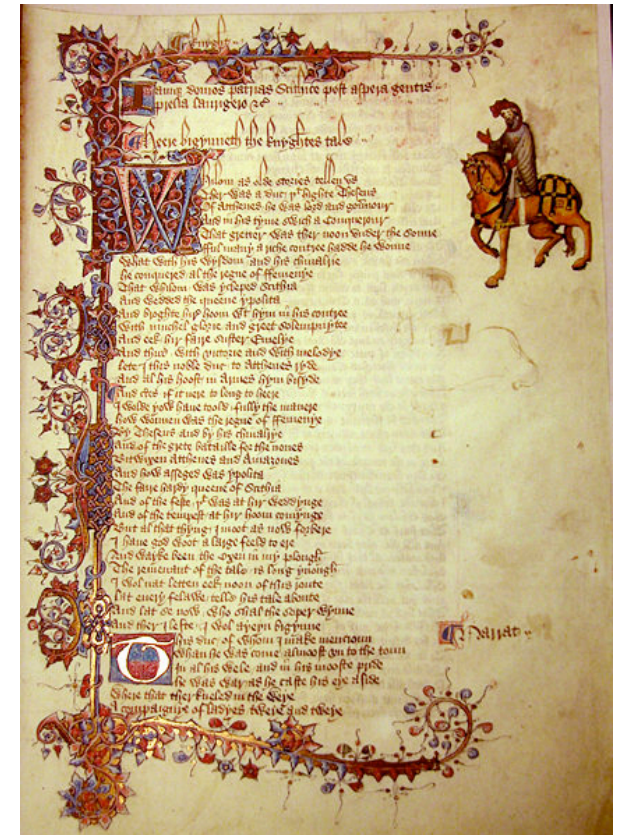 Knyght
Iamqz domos patrias Scithice post aspera gentis
prelia laurigero &c
Heere bigynneth the knyghtes tale
Whilom as olde stories tellen vs
Ther was a duc þt highte Theseus
Of Atthenes he was lord and gouernour
And in his tyme swich a Conquerour
That gretter was ther noon vnder the sonne
fful many a riche contree hadde he wonne
What with his wysdom and his chiualrie
he conquered al the regne of ffemenye
That whilom was ycleped Scithia
And wedded the queene ypolita
And broghte hir hoom wt hym in his contree
With muchel glorie and greet solempnytee
And eek hir faire suster Emelye
And thus with victorie and with melodye
lete I this noble duc to Atthenes ryde
And al his hoost in Armes hym bisyde
And certes if it nere to long to heere
I wolde yow haue toold fully the manere
how wonnen was the regne of ffemenye
By Theseus and by his chiualrye
And of the grete bataille for the nones
Bitwixen Atthenes and Amazones
And how asseged was ypolita
The faire hardy queene of Scithia
And of the feste þt was at hir weddynge
And of the tempest at hir hoom comynge
But al that thyng I moot as now forbere
I haue god woot a large feeld to ere
And wayke been the oxen in my plough
The remenant of the tale is long ynough
I wol nat letten eek noon of this route
lat euery felawe telle his tale aboute
And lat se now who shal the soper wynne
And ther I lefte I wol ayeyn bigynne
This duc of whom I make mencioun
Whan he was come almoost vn to the toun
In al his wele and in his mooste pride
he was war as he caste his eye aside
Where that ther kneled in the weye
A compaignie of ladyes tweye and tweye
Narrat